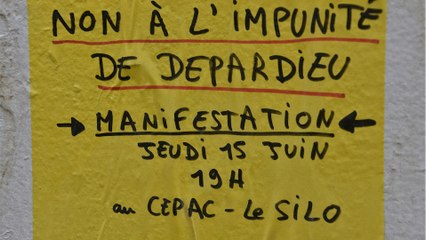 NON À L'IMPUNITÉ
DE DEPARDIEU
→ MANIFESTATION ←
JEUDI 15 JUIN
19H
au CEPAC - Le SiLO